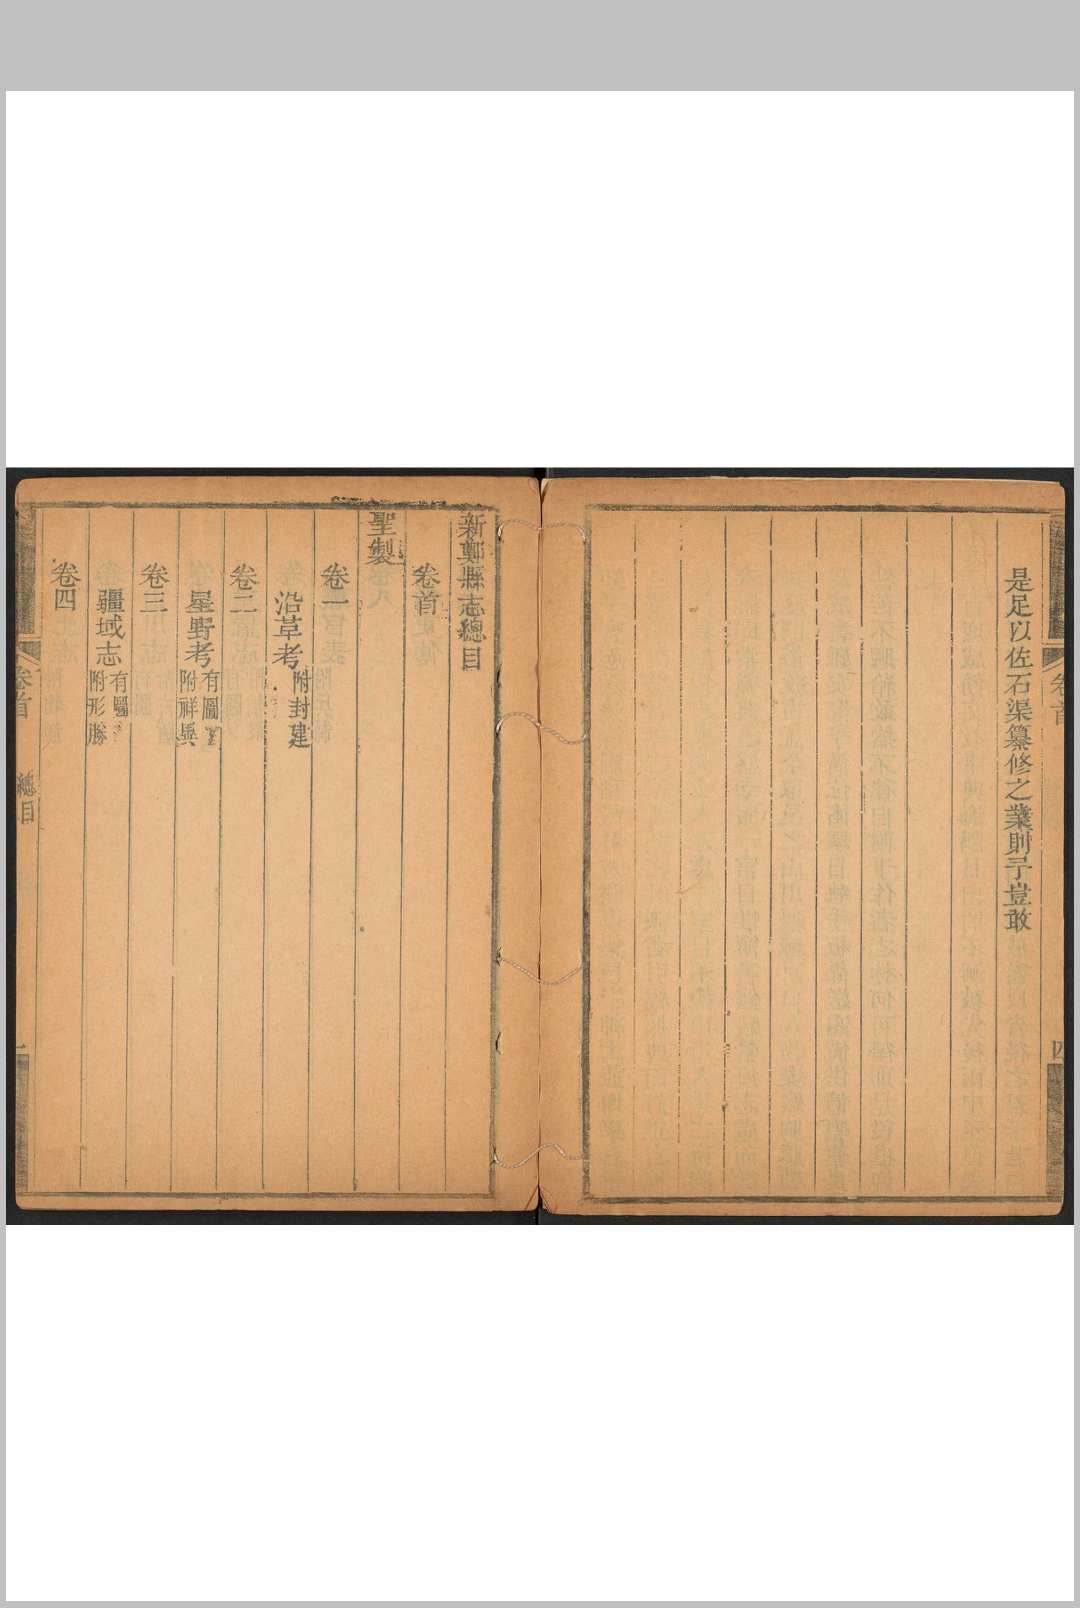 是足以佐石渠纂修之業則予豈敢
卷首
四
新鄭縣志總目
卷首
聖製
卷一
沿革考 附封建
卷二
星野考 有圖 附祥異
卷三
疆域志 有圖 附形勝
卷四
卷首 總目 一